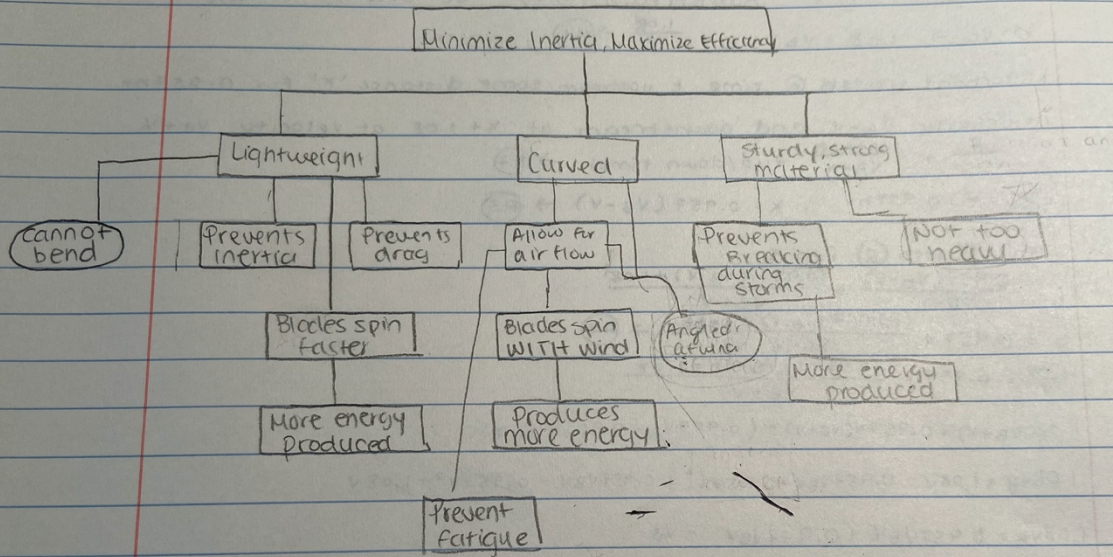 Minimize Inertia, Maximize Efficiency
Lightweight
Curved
Sturdy, strong
material
cannot
bend
Prevents
inertia
Prevents
drag
Allow for
air flow
Prevents
Breaking
during
Storms
Not too
heavy
Blades spin
faster
Blades spin
WITH wind
Angled
at wind
More energy
produced
More energy
Produced
Produces
more energy.
Prevent
fatigue